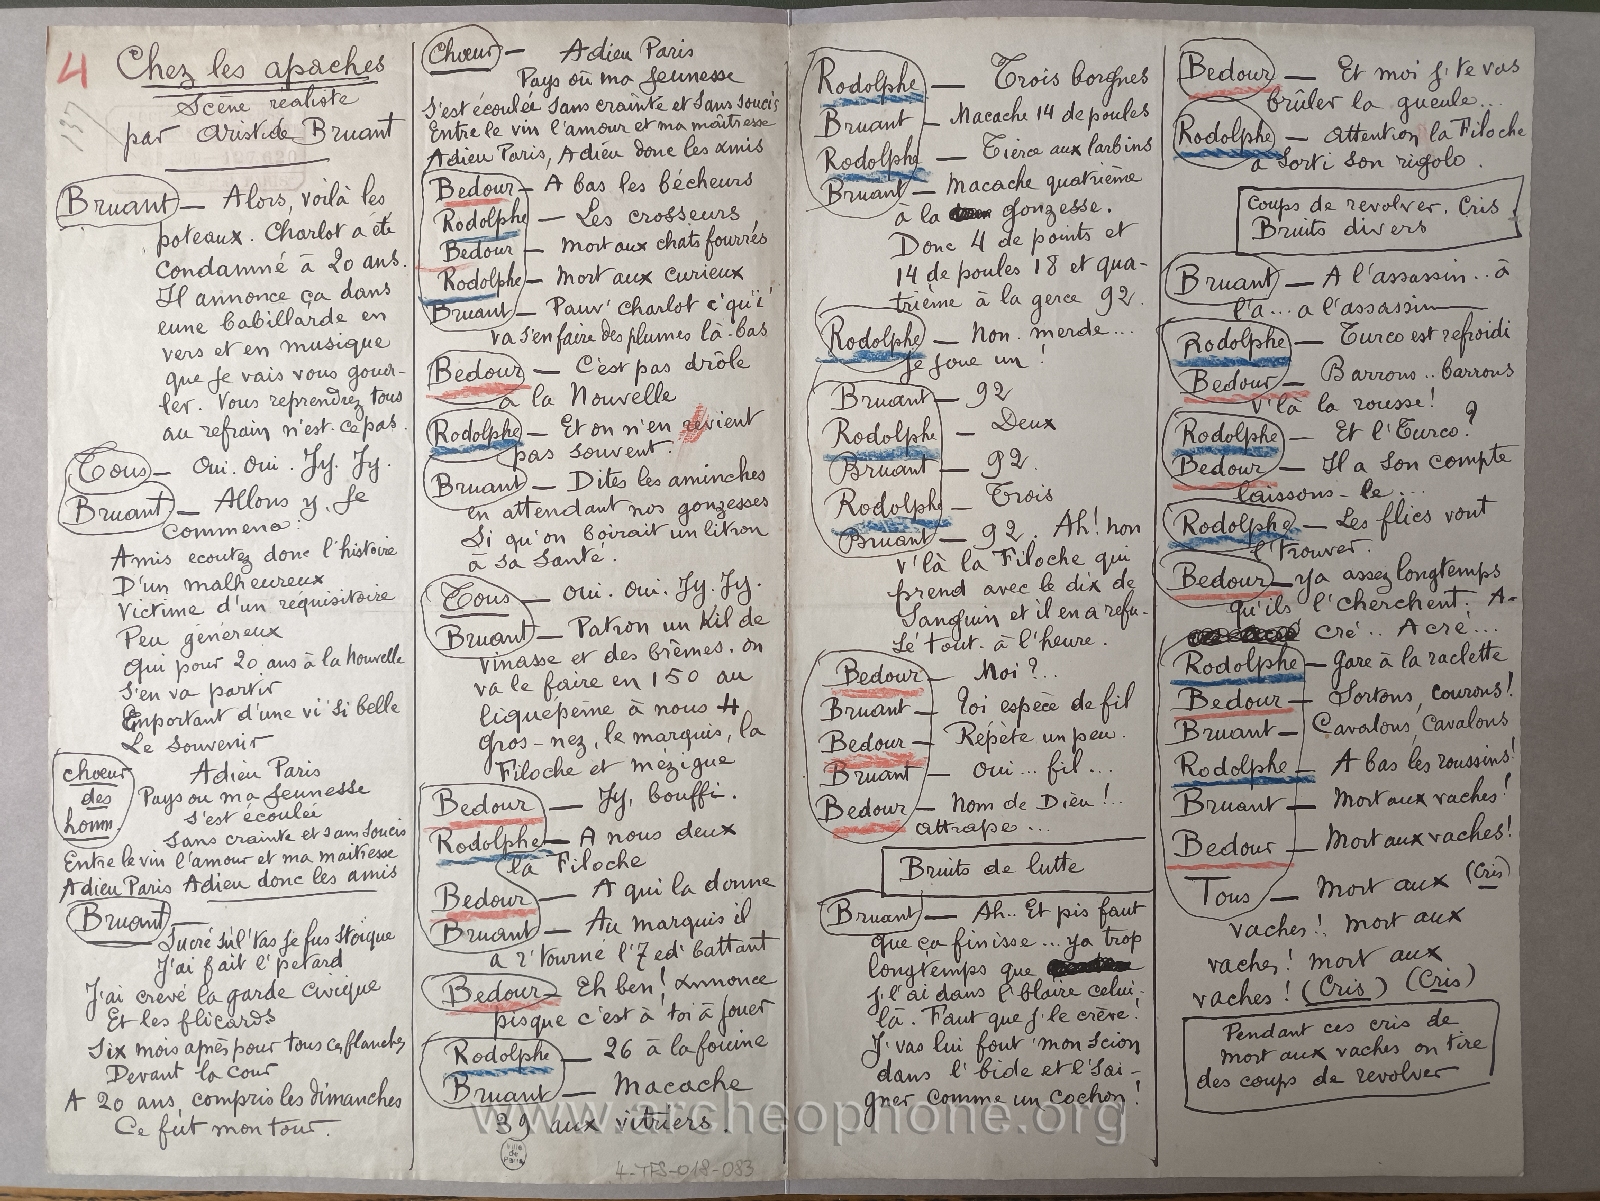 4
137
Chez les apaches
Scène réaliste
par Aristide Bruant
Bruant — Alors, voilà les
poteaux. Charlot a été
condamné à 20 ans.
Il annonce ça dans
eune babillarde en
vers et en musique
que je vais vous goua-
ler. Vous reprendrez tous
au refrain n'est-ce pas.
Tous — Oui. Oui. Jy. Jy.
Bruant — Allons y. Je
commence :
Amis ecoutez donc l'histoire
D'un malheureux
Victime d'un réquisitoire
Peu généreux
Qui pour 20 ans à la Nouvelle
S'en va partir
Emportant d'une vi' si belle
Le souvenir
chœur
des
homm.
Adieu Paris
Pays ou ma jeunesse
s'est écoulée
Sans crainte et sans soucis
Entre le vin l'amour et ma maitresse
Adieu Paris Adieu donc les amis
Bruant —
Sucré su l'tas je fus stoïque
J'ai fait l'petard
J'ai crevé la garde civique
Et les flicards
Six mois après pour tous ces flanches
Devant la cour
A 20 ans, compris les dimanches
Ce fut mon tour.
Chœur — Adieu Paris
Pays où ma jeunesse
S'est écoulée sans crainte et sans soucis
Entre le vin l'amour et ma maîtresse
Adieu Paris, Adieu donc les amis
Bedour — A bas les bécheurs
Rodolphe — Les crosseurs
Bedour — Mort aux chats fourrés
Rodolphe — Mort aux curieux
Bruant — Pauv' Charlot c'qu'i'
va s'en faire des plumes là-bas
Bedour — C'est pas drôle
à la Nouvelle
Rodolphe — Et on n'en revient
pas souvent.
Bruant — Dites les aminches
en attendant nos gonzesses
Si qu'on boirait un litron
à sa santé.
Tous — Oui. Oui. Jy. Jy.
Bruant — Patron un Kil de
vinasse et des brêmes. On
va le faire en 150 au
liquepeine à nous 4
Gros-nez, le marquis, la
Filoche et mézigue
Bedour — Jy, bouffi.
Rodolphe — A nous deux
la Filoche
Bedour — A qui la donne
Bruant — Au marquis il
a r'tourné l'7 ed' battant
Bedour — Eh ben ! Annonce
pisque c'est à toi à jouer
Rodolphe — 26 à la fouine
Bruant — Macache
39 aux vitriers.
Rodolphe — Trois borgnes
Bruant — Macache 14 de poules
Rodolphe — Tierce aux larbins
Bruant — Macache quatrième
à la gonzesse.
Donc 4 de points et
14 de poules 18 et qua-
trième à la gerce 92.
Rodolphe — Non. merde...
je joue un !
Bruant — 92
Rodolphe — Deux
Bruant — 92.
Rodolphe — Trois
Bruant — 92. Ah ! non
v'là la Filoche qui
prend avec le dix de
Sanguin et il en a refu-
sé tout à l'heure.
Bedour — Moi ?..
Bruant — Toi espèce de fil
Bedour — Répète un peu.
Bruant — Oui... fil...
Bedour — Nom de Dieu !..
attrape...
Bruits de lutte
Bruant — Ah.. Et pis faut
que ça finisse... ya trop
longtemps que
j'l'ai dans l'blaire celui-
là. Faut que j'le crève !
J'vas lui fout' mon scion
dans l'bide et l'sai-
gner comme un cochon !
Bedour — Et moi j'te vas
brûler la gueule...
Rodolphe — Attention la Filoche
a sorti son rigolo.
Coups de revolver. Cris.
Bruits divers
Bruant — A l'assassin.. à
l'a... a l'assassin
Rodolphe — Turco est refroidi
Bedour — Barrons.. barrons
v'là la rousse !
Rodolphe — Et l'Turco ?
Bedour — Il a son compte
laissons-le...
Rodolphe — Les flics vont
l'trouver.
Bedour — ya assez longtemps
qu'ils l'cherchent. A-
cré.. Acré...
Rodolphe — Gare à la raclette
Bedour — Sortons, courons !
Bruant — Cavalons, cavalons
Rodolphe — A bas les roussins !
Bruant — Mort aux vaches !
Bedour — Mort aux vaches !
Tous — Mort aux (Cris)
vaches ! Mort aux
vaches ! Mort aux
vaches ! (Cris) (Cris)
Pendant ces cris de
mort aux vaches on tire
des coups de revolver
www.archeophone.org
Ville
de
Paris
4-TFS-018-083